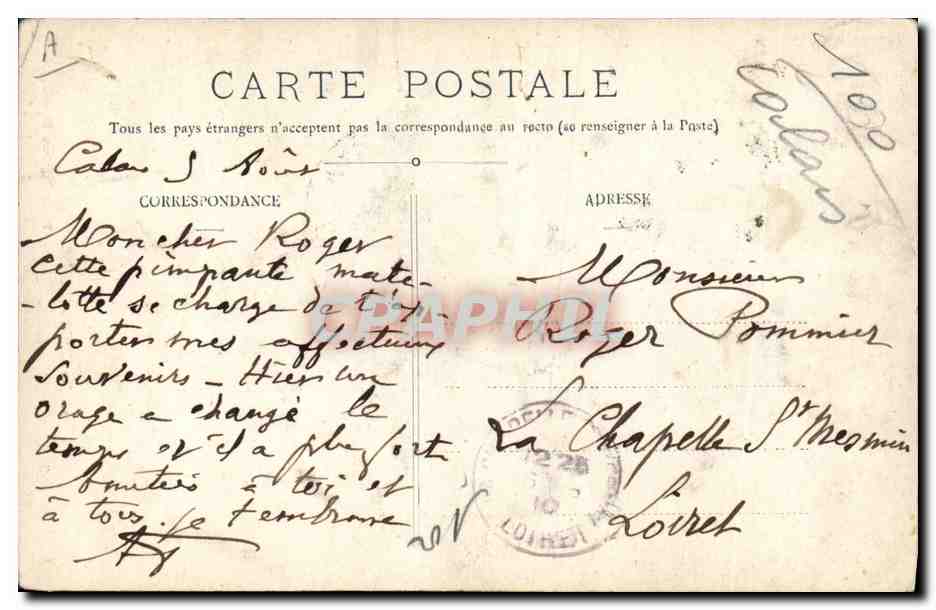 A
CARTE POSTALE
Tous les pays étrangers n'acceptent pas la correspondance au recto (se renseigner à la Poste)
Calais 5 Août
CORRESPONDANCE
Mon cher Roger
cette pimpante mate-
-lotte se charge de t'ap-
porter mes affectueux
souvenirs - Hier un
orage a changé le
temps et il a plu fort
Amitiés à toi et
à tous. je t'embrasse
ADRESSE
Monsieur
Roger Pommier
La Chapelle St Mesmin
Loiret
1030
Calais
12 25
10
LOIRET
CPAPHIL